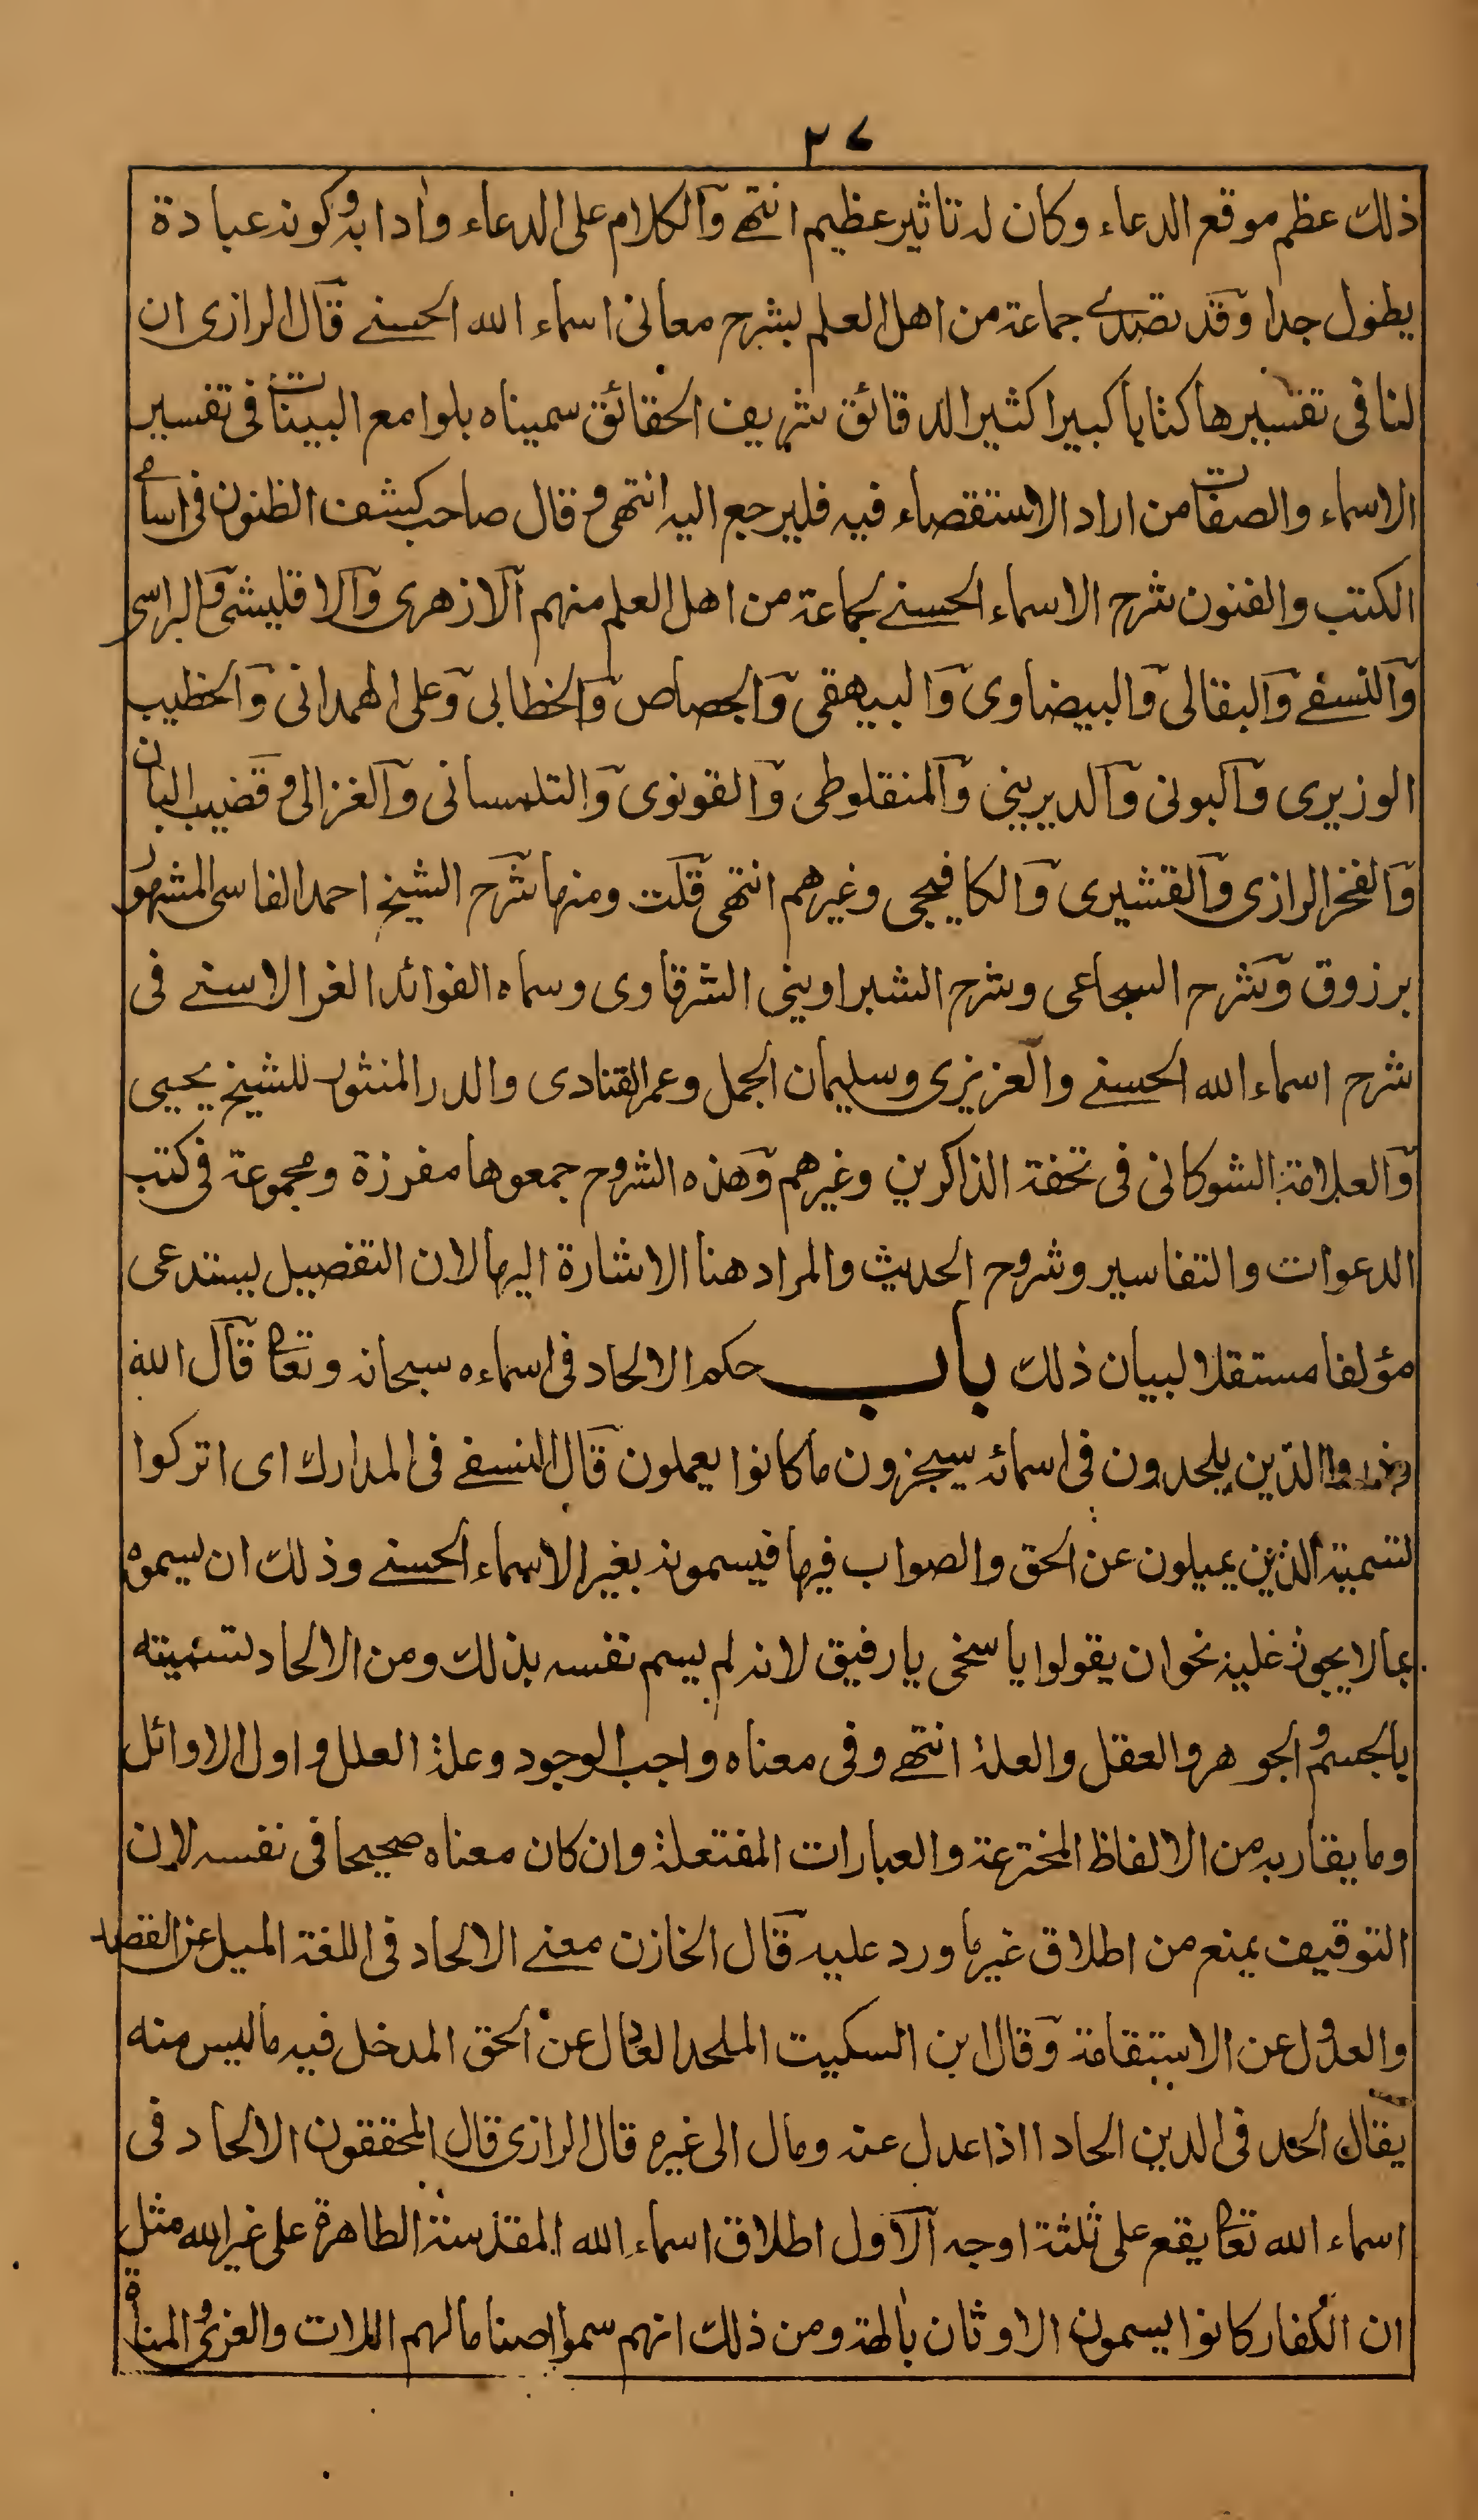 ٢٧
ذلك عظم موقع الدعاء وكان له تاثير عظيم انتهى والكلام على الدعاء وادابه وكونه عبادة
يطول جدا وقد تصدى جماعة من اهل العلم بشرح معانى اسماء الله الحسنى قال الرازى ان
لنا فى تفسيرها كتابا كبيرا كثير الدقائق شريف الحقائق سميناه بلوامع البينات فى تفسير
الاسماء والصفات من اراد الاستقصاء فيه فليرجع اليه انتهى وقال صاحب كشف الظنون فى اسامى
الكتب والفنون شرح الاسماء الحسنى لجماعة من اهل العلم منهم الازهرى والاقليشى
والنسفى والبقالى والبيضاوى والبيهقى والجصاص والخطابى وعلى الهمدانى والخطيب
الوزيرى والبونى والديرينى والمنفلوطى والقونوى والتلمسانى والغزالى وقضيب البان
والفخر الرازى والقشيرى والكافيجى وغيرهم انتهى قلت ومنها شرح الشيخ احمد الفاسى المشهور
برزوق وشرح السجاعى وشرح الشبراوينى الشرقاوى وسماه الفوائد الغر الاسنى فى
شرح اسماء الله الحسنى والعزيزى وسليمان الجمل وعمر القنادى والدر المنثور للشيخ يحيى
والعلامة الشوكانى فى تحفة الذاكرين وغيرهم وهذه الشروح جمعوها مفرزة ومجموعة فى كتب
الدعوات والتفاسير وشروح الحديث والمراد هنا الاشارة اليها لان التفصيل يستدعى
مؤلفا مستقلا لبيان ذلك باب حكم الالحاد فى اسماءه سبحانه وتعا قال الله
وذروا الذين يلحدون فى اسمائه سيجزون ما كانوا يعملون قال النسفى فى المدارك اى اتركوا
تسمية الذين يميلون عن الحق والصواب فيها فيسمونه بغير الاسماء الحسنى وذلك ان يسموه
بما لا يجوز عليه نحو ان يقولوا يا سخى يا رفيق لانه لم يسم نفسه بذلك ومن الالحاد تسميته
بالجسم والجوهر والعقل والعلة انتهى وفى معناه واجب الوجود وعلة العلل واول الاوائل
وما يقاربه من الالفاظ المخترعة والعبارات المفتعلة وان كان معناه صحيحا فى نفسه لان
التوقيف يمنع من اطلاق غير ما ورد عليه قال الخازن معنى الالحاد فى اللغة الميل عن القصد
والعدول عن الاستقامة وقال ابن السكيت الملحد العادل عن الحق المدخل فيه ما ليس منه
يقال الحد فى الدين الحادا اذا عدل عنه ومال الى غيره قال الرازى قال المحققون الالحاد فى
اسماء الله تعا يقع على ثلثة اوجه الاول اطلاق اسماء الله المقدسة الطاهرة على غير الله مثل
ان الكفار كانوا يسمون الاوثان بالهة ومن ذلك انهم سموا اصناما لهم اللات والعزى والمناة